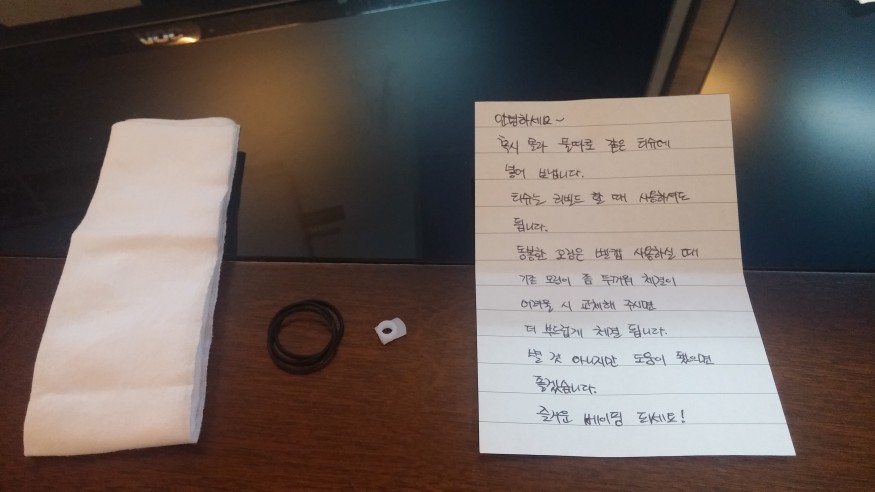 안녕하세요~
혹시 몰라 물따로 같은 티슈에
넣어 보냅니다.
티슈는 리빌드 할 때 사용하셔도
됩니다.
동봉한 오링은 벨캡 사용하실 때
기존 오링이 좀 두꺼워 체결이
어려울 시 교체해 주시면
더 부드럽게 체결 됩니다.
별 것 아니지만 도움이 됐으면
좋겠습니다.
즐거운 베이핑 되세요!